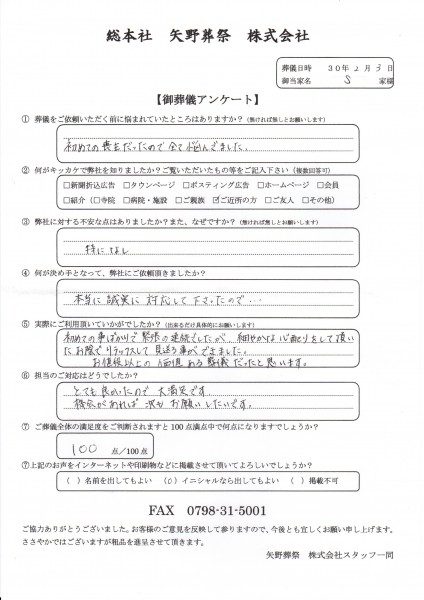 総本社 矢野葬祭 株式会社
葬儀日時 30年2月3日
御当家名 S 家様
【御葬儀アンケート】
① 葬儀をご依頼いただく前に悩まれていたところはありますか?(無ければ無しとお願いします)
初めての喪主だったので全て悩んでました。
② 何がキッカケで弊社を知りましたか?ご覧いただいたもの等をご記入下さい(複数回答可)
□新聞折込広告 □タウンページ □ポスティング広告 □ホームページ □会員
□紹介(□寺院 □病院・施設 □ご親族 ☑ご近所の方 □ご友人 □その他)
③ 弊社に対する不安な点はありましたか?また、なぜですか?(無ければ無しとお願いします)
特になし
④ 何が決め手となって、弊社にご依頼頂きましたか?
本当に誠実に対応して下さったので…
⑤ 実際にご利用頂いていかがでしたか?(出来るだけ具体的にお願いします)
初めての事ばかりで緊張の連続でしたが、細やかな心配りをして頂い
たお陰でリラックスして見送る事ができました。
お値段以上の価値ある葬儀だったと思います。
⑥ 担当のご対応はどうでしたか?
とても良かったので大満足です。
機会があれば次もお願いしたいです。
⑦ ご葬儀全体の満足度をご判断されますと100点満点中で何点になりますでしょうか?
100 点/100点
⑦上記のお声をインターネットや印刷物などに掲載させて頂いてよろしいでしょうか?
( )名前を出してもよい (○)イニシャルなら出してもよい ( )掲載不可
FAX 0798-31-5001
ご協力ありがとうございました。お客様のご意見を反映して参りますので、今後とも宜しくお願い申し上げます。
ささやかではございますが粗品を進呈させて頂きます。
矢野葬祭 株式会社スタッフ一同